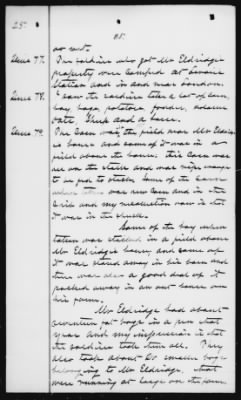 25.
25.
as rent.
Item 77.
The soldiers who got Mr Eldridge
property were camped at
Station and in and near London.
Item 78.
I saw the soldiers take a lot of corn,
hay, hogs, potatoes, fodder,
oats, sheep and a horse.
Item 79.
The corn was in the field near Mr Eldridge
house and some of it was in a
field above the house. this corn was
all on the stalks and was ripe enough
to be put to stock. Some of the corn
when taken was old corn and in the
crib and my recollection now is that
it was in the shuck.
Some of the hay when
taken was stacked in a field above
Mr Eldridge house and some of
it was stored away in his barn and
there was also a good deal of it
packed away in an out house on
his farm.
Mr Eldridge had about
seventeen fat hogs in a pen that
year and my impression is that
the soldiers took them all. They
also took about 20 smaller hogs
belonging to Mr Eldridge, that
were running at large on the farm